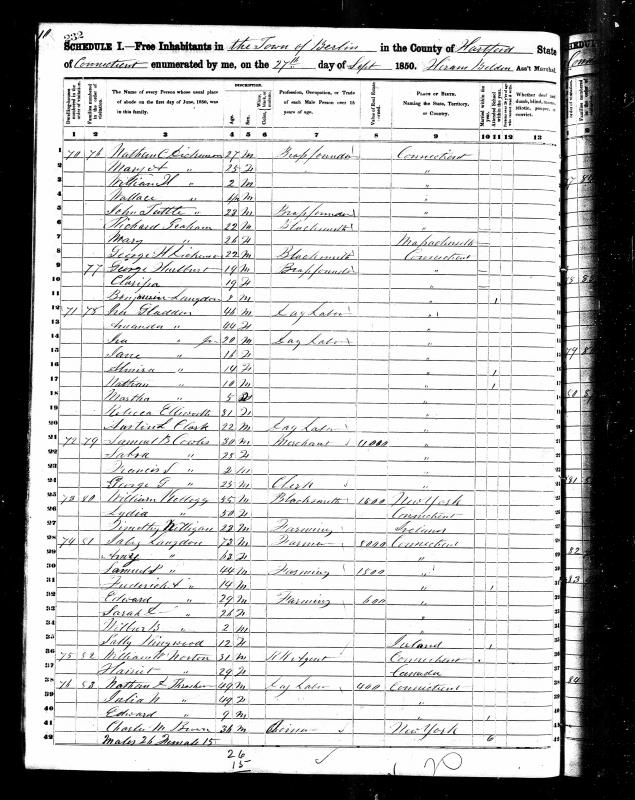 232
SCHEDULE I.—Free Inhabitants in the Town of Berlin in the County of Hartford State
of Connecticut enumerated by me, on the 27th day of Sept 1850. Hiram Belden Ass't Marshal.
Dwelling-houses numbered in the order of visitation.
Families numbered in the order of visitation.
The Name of every Person whose usual place of abode on the first day of June, 1850, was in this family.
DESCRIPTION.
Age.
Sex.
Profession, Occupation, or Trade of each Male Person over 15 years of age.
Value of Real Estate owned.
PLACE OF BIRTH.
Naming the State, Territory, or Country.
Married within the year.
Attended School within the year.
Whether deaf and dumb, blind, insane, idiotic, pauper, or convict.
1 2 3 4 5 6 7 8 9 10 11 12 13
1 70 76 Nathan C. Dickinson 27 M Brassfounder Connecticut
2 Mary " 25 F "
3 William H " 2 M "
4 Wallace " M "
5 John Tuttle " 28 M Brassfounder "
6 Richard Graham 22 M Blacksmith "
7 Mary " 26 F Massachusetts
8 George H Dickinson 22 M Blacksmith Connecticut
9 77 George Hurlburt 19 M Brassfounder "
10 Clarissa 19 F "
11 Benjamin Langdon 8 M " 1
12 71 78 Ira Gladden 46 M Day Labor "
13 Amanda " 44 F "
14 Ira " Jr 20 M Day Labor "
15 Jane " 16 F "
16 Almira " 14 F " 1
17 Nathan " 10 M " 1
18 Martha " 5 F "
19 Rebecca Ellsworth 81 F "
20 Clark 22 M Day Labor "
21 72 79 Samuel B Cowles 30 M Merchant 11000 "
22 Sabra " 25 F "
23 Francis S " 2 M "
24 George T " 25 M Clerk "
25 73 80 William Kellogg 55 M Blacksmith 1800 New York
26 Lydia " 50 F Connecticut
27 Timothy Milligan 23 M Farming Ireland
28 74 81 Langdon 73 M Farmer 8000 Connecticut
29 " 63 F "
30 Samuel " 44 M Farming 1800 "
31 Frederick " 14 M " 1
32 Edward " 29 M Farming 600 "
33 Sarah L " 26 F "
34 Wilbur B " 2 M "
35 Sally 12 F Ireland 1
36 75 82 William Norton 31 M RR Agent Connecticut
37 Harriet " 29 F Canada
38 76 83 Nathan L Thrasher 49 M Day Labor 400 Connecticut
39 Julia N " 49 F "
40 Edward " 9 M " 1
41 Charles M Brown 34 M New York
42 Males 26 Female 15 6
26
15